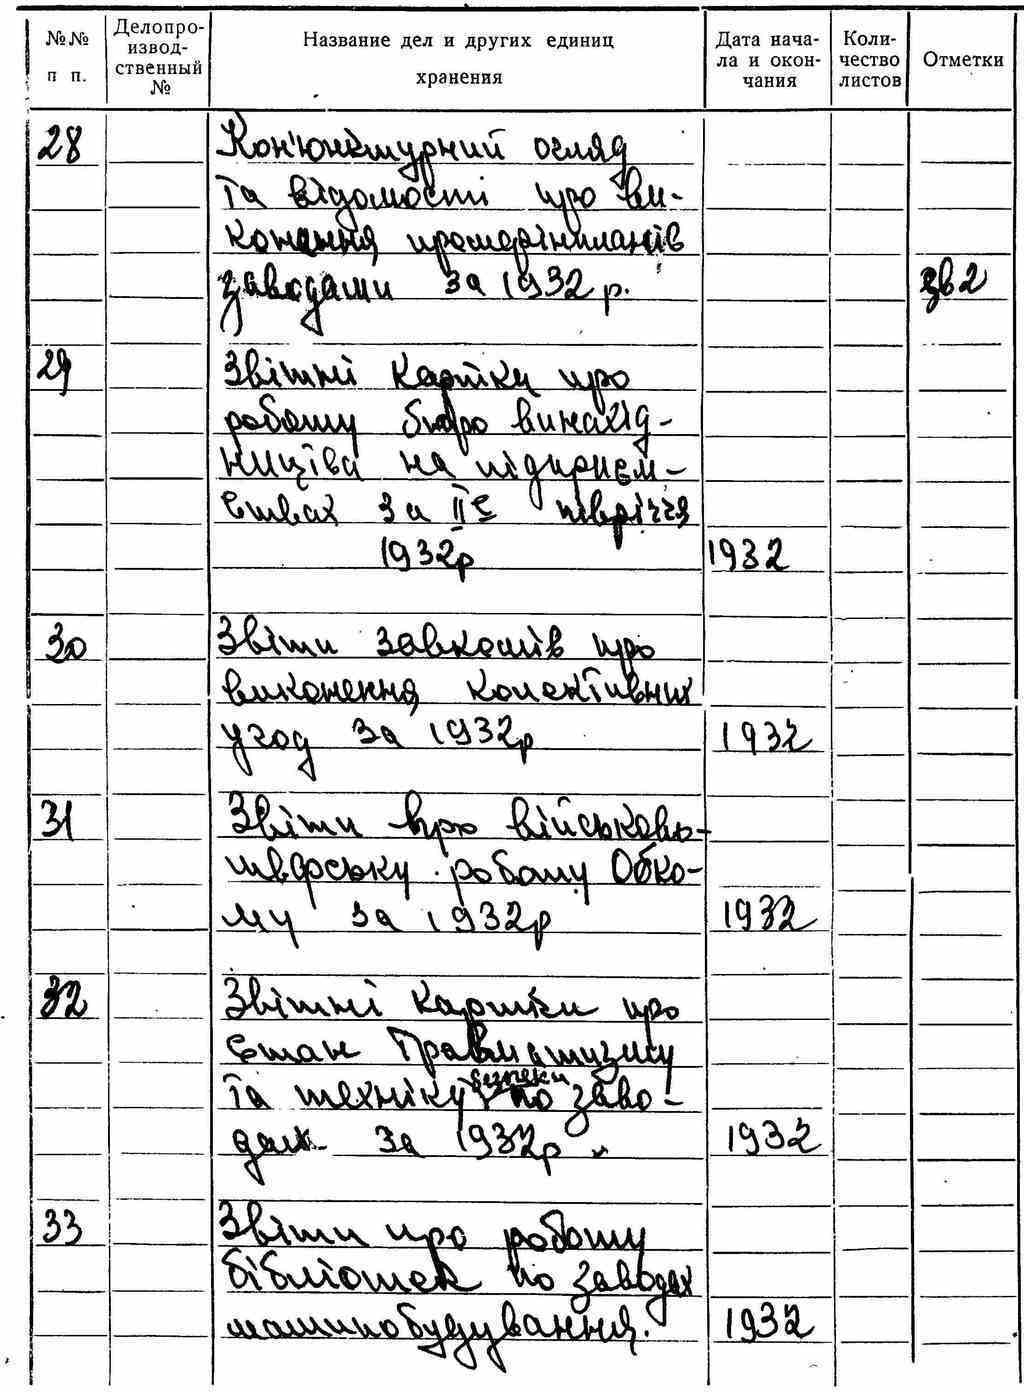 №№ п п.
Делопро-
извод-
ственный
№
Название дел и других единиц
хранения
Дата нача-
ла и окон-
чания
Коли-
чество
листов
Отметки
28 Кон'юнктурний огляд
та відомості про ви-
конання промфінпланів
заводами за 1932 р.
29 Звітні картки про
роботу бюро винахід-
ництва на підприєм-
ствах за ІІе півріччя
1932р 1932
30 Звіти завкомів про
виконення колективних
угод за 1932р 1932
31 Звіти про військово-
шефську роботу Обко-
му за 1932р 1932
32 Звітні картки про
стан травматизму
та техніку безпеки по заво-
дах за 1932р. 1932
33 Звіти про роботу
бібліотек по заводах
машинобудування. 1932